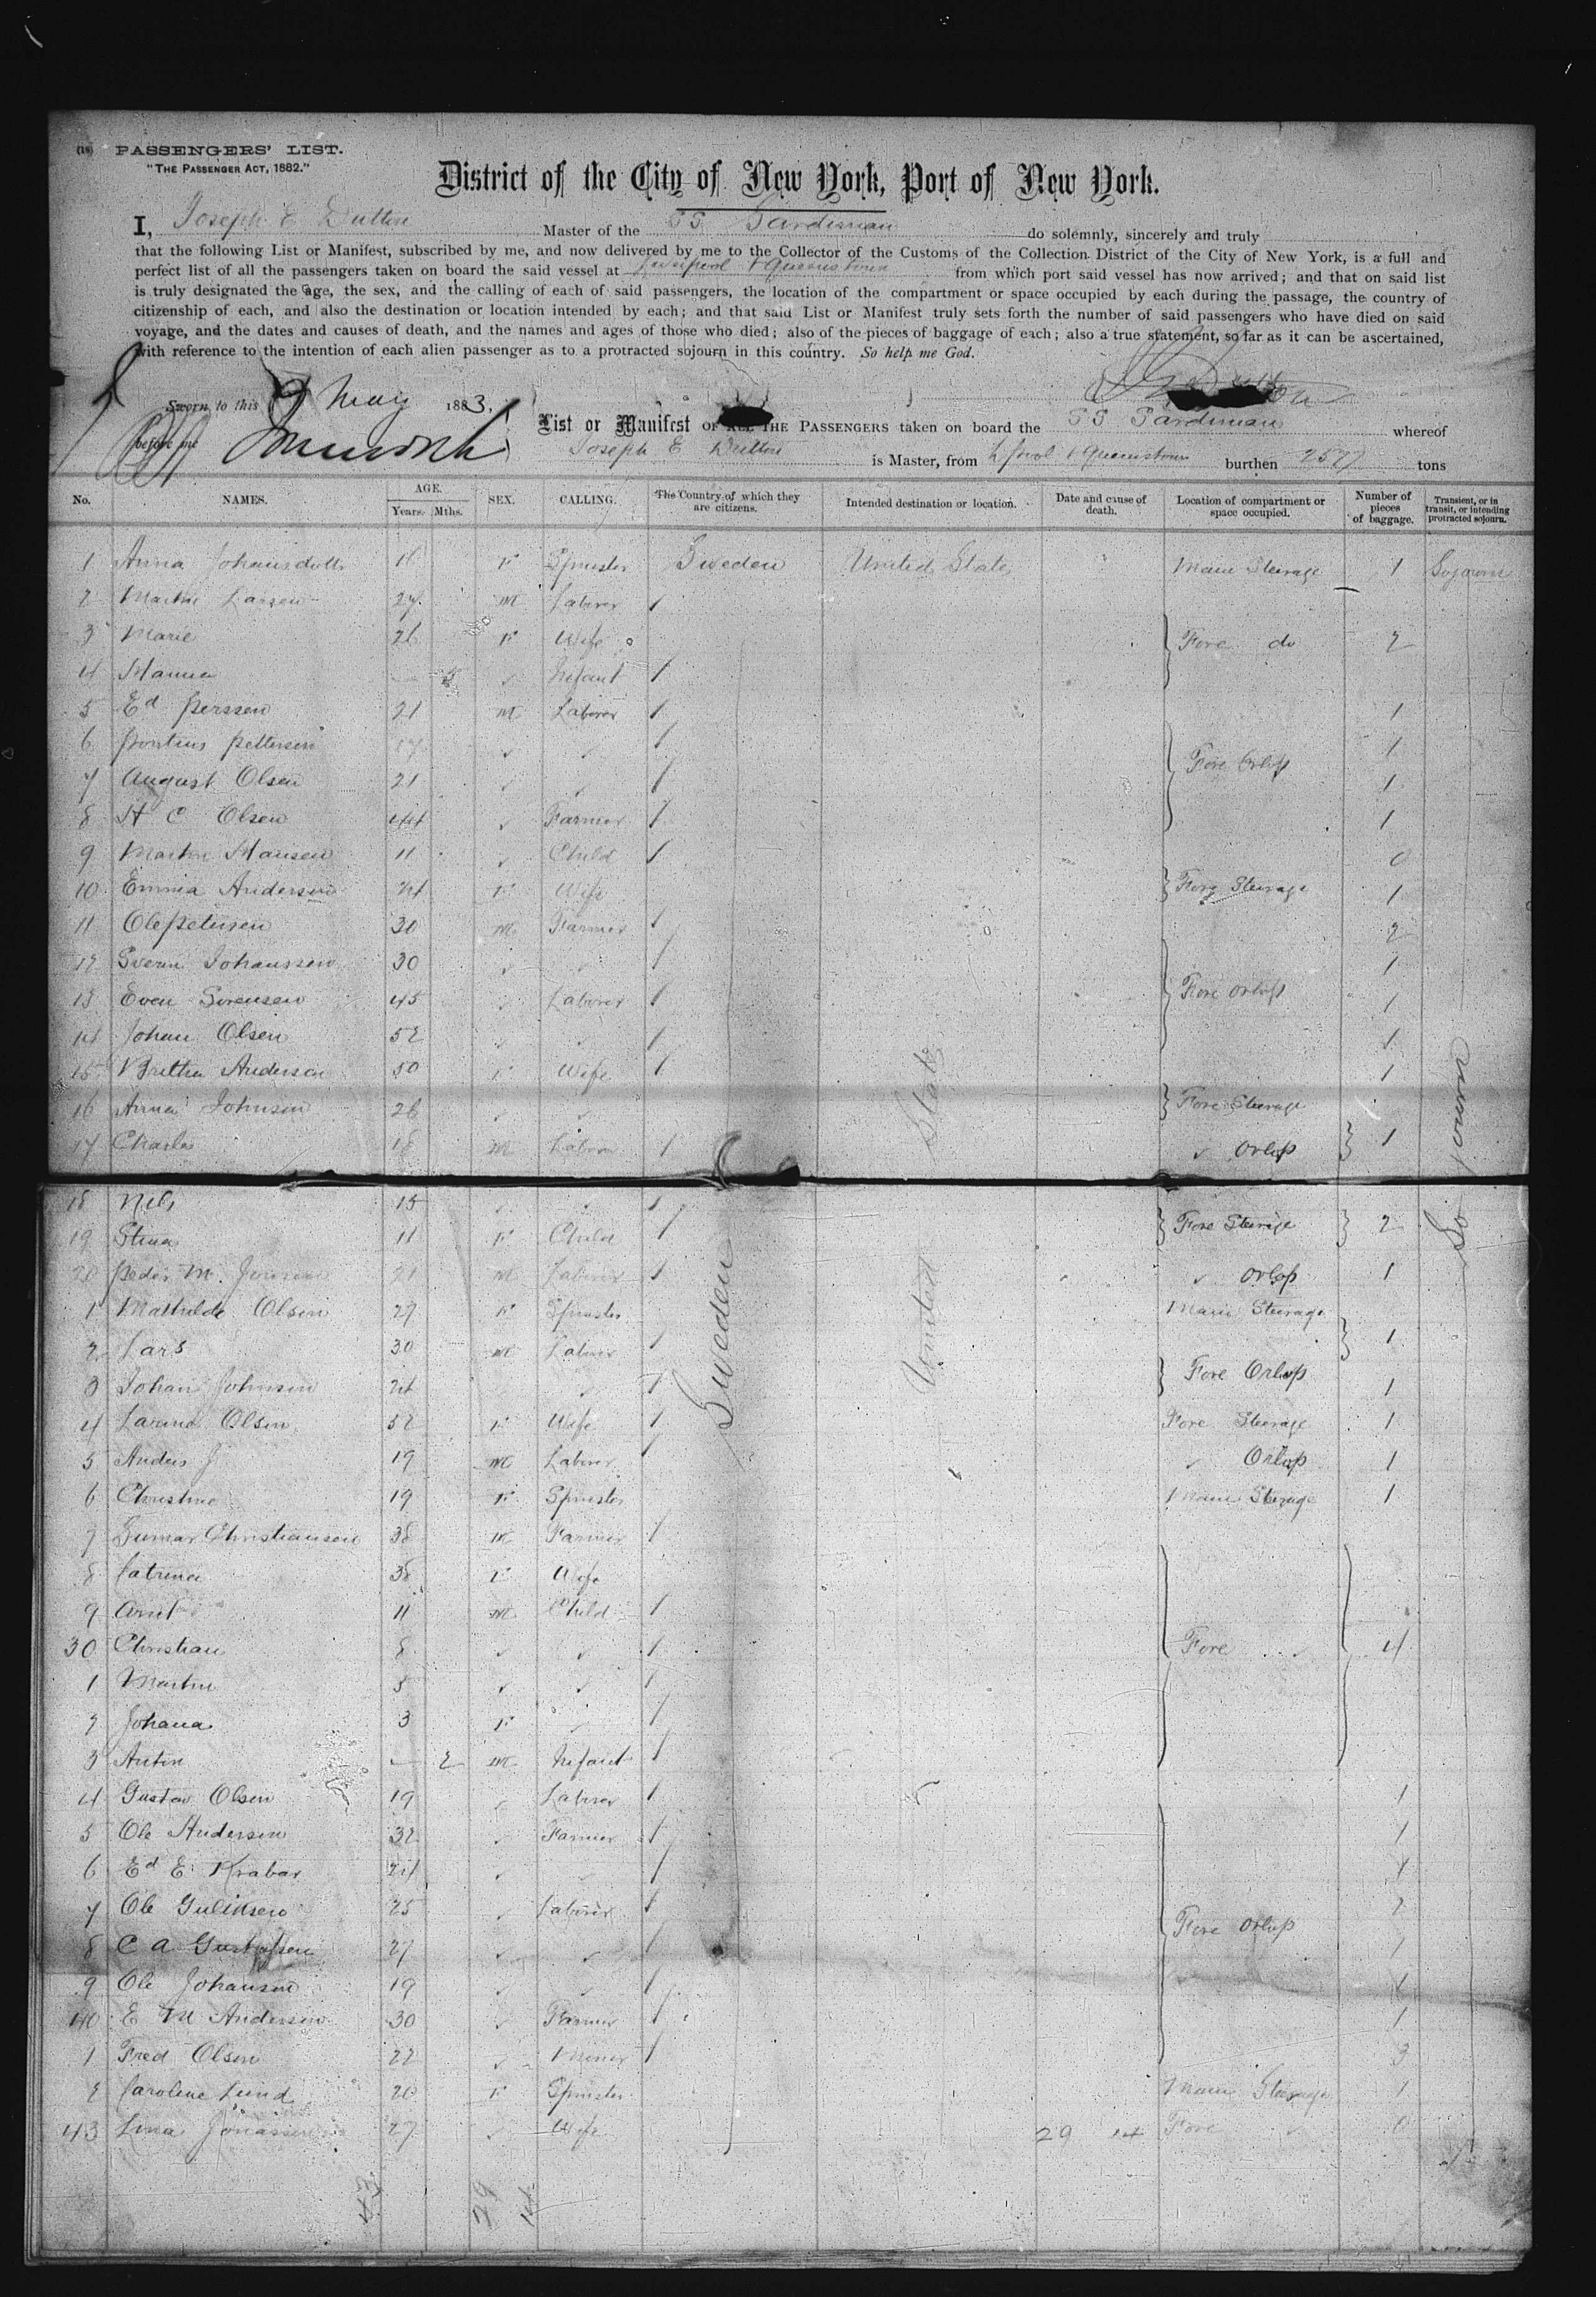 (18) PASSENGERS' LIST.
"THE PASSENGER ACT, 1882."
District of the City of New York, Port of New York.
I, Joseph E Dutton Master of the SS Sardinian do solemnly, sincerely and truly
that the following List or Manifest, subscribed by me, and now delivered by me to the Collector of the Customs of the Collection District of the City of New York, is a full and
perfect list of all the passengers taken on board the said vessel at Liverpool & Queenstown from which port said vessel has now arrived; and that on said list
is truly designated the age, the sex, and the calling of each of said passengers, the location of the compartment or space occupied by each during the passage, the country of
citizenship of each, and also the destination or location intended by each; and that said List or Manifest truly sets forth the number of said passengers who have died on said
voyage, and the dates and causes of death, and the names and ages of those who died; also of the pieces of baggage of each; also a true statement, so far as it can be ascertained,
with reference to the intention of each alien passenger as to a protracted sojourn in this country. So help me God.
Sworn to this 9 May 1883.
before me
List or Manifest OF ALL THE PASSENGERS taken on board the SS Sardinian whereof
Joseph E Dutton is Master, from L'pool & Queenstown burthen 2577 tons
No. NAMES. AGE. Years. Mths. SEX. CALLING. The Country of which they are citizens. Intended destination or location. Date and cause of death. Location of compartment or space occupied. Number of pieces of baggage. Transient, or in transit, or intending protracted sojourn.
1 Anna 16 F Spinster Sweden United States Main Steerage 1 Sojourn
2 Martin Larsen 27 M Laborer 1
3 Marie 26 F Wife Fore do 2
4 Hanna — 5 ✓ Infant 1
5 Ed Perssen 21 M Laborer 1 1
6 Pontius Pettersen ✓ ✓ 1 Fore Orlop 1
7 August Olsen 21 ✓ ✓ 1 1
8 H C Olsen 44 ✓ Farmer 1 1
9 Martin Hansen 11 ✓ Child 1 0
10 Emma Andersen 24 F Wife Fore Steerage 1
11 Ole Petersen 30 M Farmer 1 2
12 Sverin Johanssen 30 ✓ ✓ 1 1
13 Even Sorensen 45 ✓ Laborer 1 Fore Orlop 1
14 Johan Olsen 52 ✓ ✓ 1 1
15 Brethe Andersen 50 F Wife 1 1
16 Anna Johnsen 26 ✓ ✓ Fore Steerage
17 Charles 18 M Laborer 1 ✓ Orlop 1
18 Nils 15 ✓ ✓ 1
19 Stina 11 F Child 1 Fore Steerage 2
20 Peder M. Jensen 21 M Laborer 1 ✓ Orlop 1
1 Mathilde Olsen 27 F Spinster Main Steerage
2 Lars 30 M Laborer 1 1
3 Johan Johnsen 24 ✓ 1 Fore Orlop 1
4 Larine Olsen 52 F Wife 1 Fore Steerage 1
5 Anders J 19 M Laborer 1 ✓ Orlop 1
6 Christine 19 F Spinster Main Steerage 1
7 Gunnar Christiansen 38 M Farmer 1
8 Catrina 38 F Wife
9 Arnt 11 M Child 1
30 Christian 8 ✓ ✓ 1 Fore ✓ 4
1 Martin 5 ✓ ✓ 1
2 Johana 3 F ✓ 1
3 Anton — 2 M Infant 1
4 Gustav Olsen 19 ✓ Laborer 1 1
5 Ole Andersen 32 ✓ Farmer 1 1
6 Ed E. Krabar 24 ✓ ✓ 1 1
7 Ole Guliksen 25 ✓ Laborer 1 2
8 C A Gustafsen 27 ✓ ✓ 1 Fore Orlop 1
9 Ole Johansen 19 ✓ ✓ 1 1
40 E M Andersen 30 ✓ Farmer 1 1
1 Fred Olsen 22 ✓ Miner 1 3
2 Caroline Lund 20 F Spinster Main Steerage 1
43 Lina Jonassen 27 ✓ Wife 29 14 Fore ✓ 0
Sweden
United States
Sojourn
43
29
14